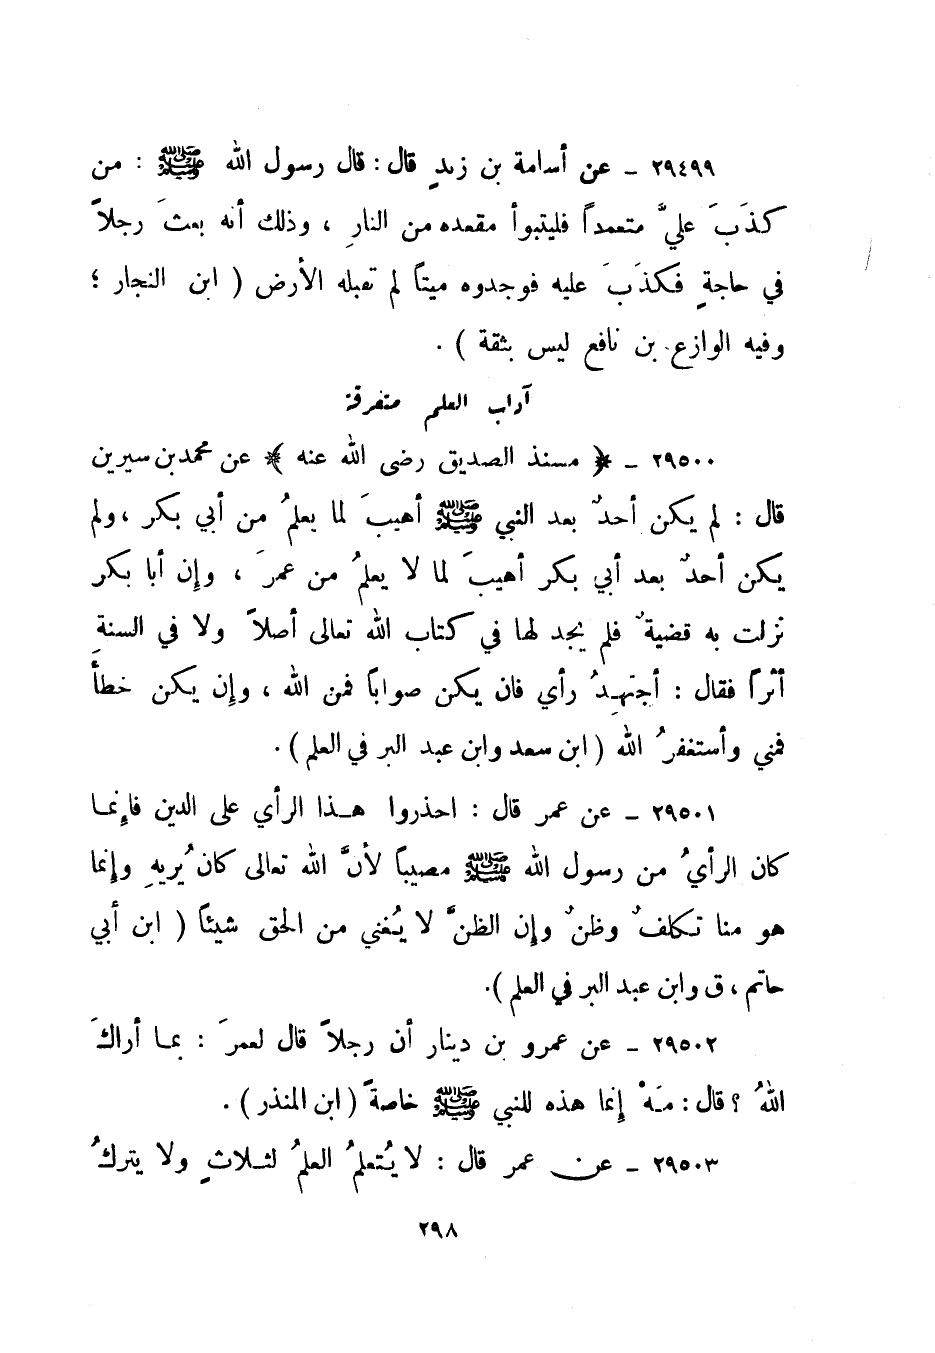 ٢٩٤٩٩ - عن أسامة بن زيدٍ قال : قال رسول الله ﷺ : من
كذَبَ عليَّ متعمداً فليتبوأ مقعده من النارِ ، وذلك أنه بعثَ رجلاً
في حاجةٍ فكذَبَ عليه فوجدوه ميتاً لم تقبله الأرض ( ابن النجار ؛
وفيه الوازع بن نافع ليس بثقة ) .
آداب العلم متفرقة
٢٩٥٠٠ - ﴿ مسند الصديق رضى الله عنه ﴾ عن محمد بن سيرين
قال : لم يكن أحدٌ بعد النبي ﷺ أهيبَ لما يعلمُ من أبي بكر ، ولم
يكن أحدٌ بعد أبي بكر أهيبَ لما لا يعلمُ من عمرَ ، وإن أبا بكر
نزلت به قضيةٌ فلم يجد لها في كتاب الله تعالى أصلاً ولا في السنةِ
أثراً فقال : أجتهِدُ رأي فان يكن صواباً فمن الله ، وإن يكن خطأً
فمني وأستغفرُ الله ( ابن سعد وابن عبد البر في العلم ) .
٢٩٥٠١ - عن عمر قال : احذروا هذا الرأي على الدين فإنما
كان الرأيُ من رسول الله ﷺ مصيباً لأنَّ الله تعالى كان يُريهِ وإنما
هو منا تكلفٌ وظنٌ وإن الظنَّ لا يُغني من الحق شيئاً ( ابن أبي
حاتم ، ق وابن عبد البر في العلم ).
٢٩٥٠٢ - عن عمرو بن دينار أن رجلاً قال لعمرَ : بما أراكَ
اللهُ ؟ قال : مَهْ إنما هذه للنبي ﷺ خاصةً ( ابن المنذر ) .
٢٩٥٠٣ - عن عمر قال : لا يُتعلمُ العلمُ لثلاثٍ ولا يتركُ
٢٩٨